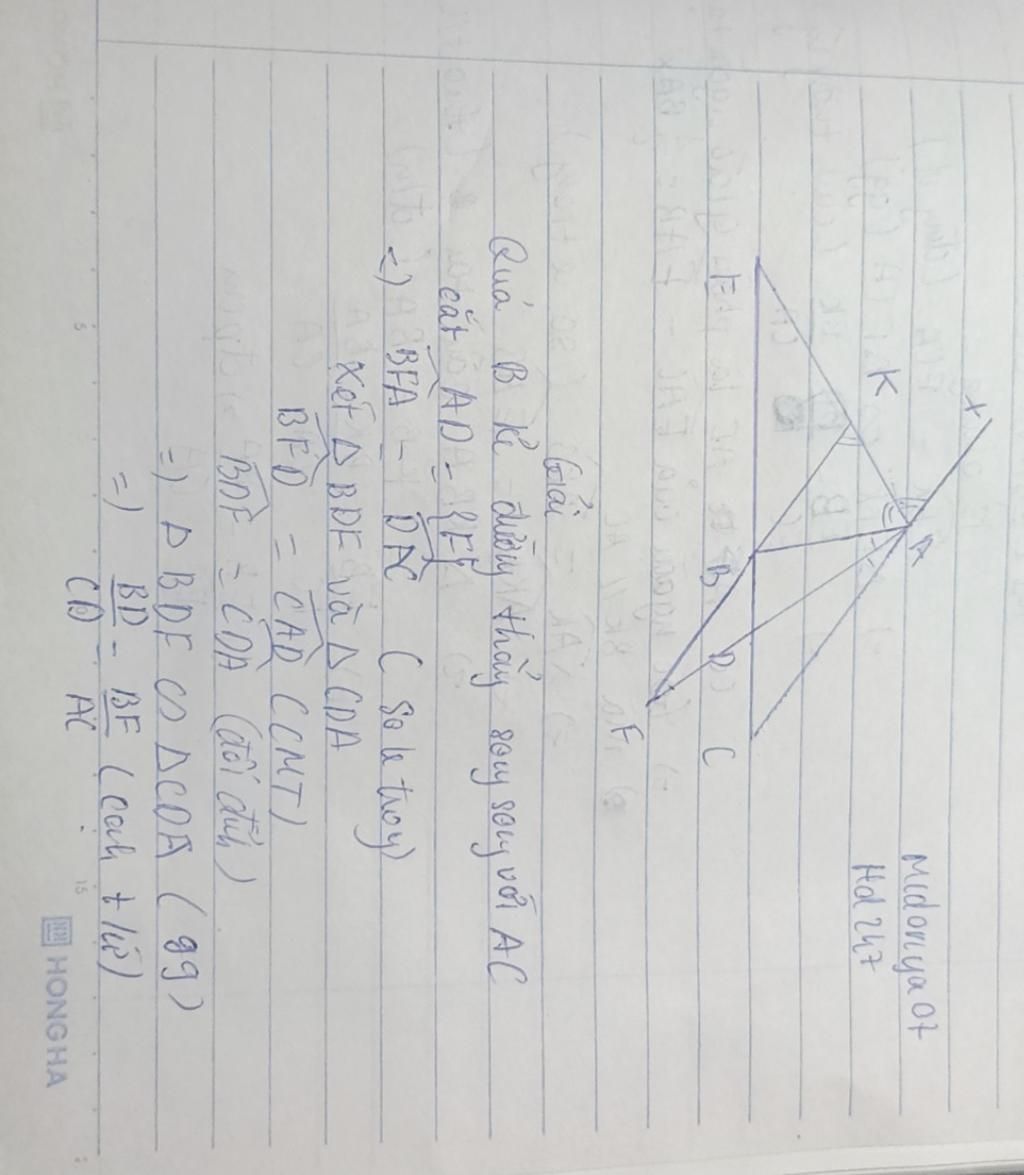 x
A
K
E
B
D
C
F
Midoriya07
Hd247
Giải
Quá B kẻ đường thẳng song song với AC
cắt AD = {F}
=) BFA = DAC ( so le trong)
Xét Δ BDF và Δ CDA
BFD = CAD (CMT)
BDF = CDA (đối đỉnh)
=) Δ BDF ∽ Δ CDA ( gg)
=) BD/CD = BF/AC (cạnh t lứ)
5
15
HONG HA